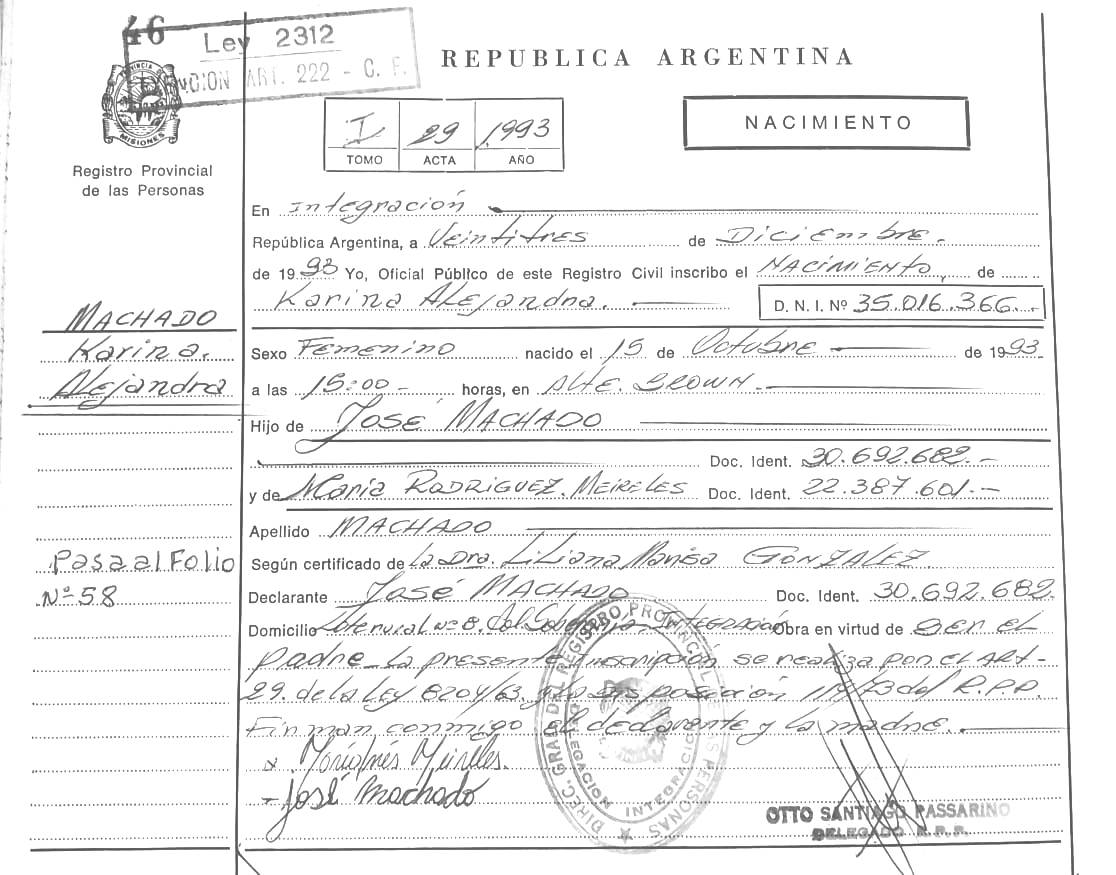 46
Ley 2312
ART. 222 - C. F.
REPUBLICA ARGENTINA
PROVINCIA DE
MISIONES
Registro Provincial
de las Personas
I 29 1993
TOMO ACTA AÑO
NACIMIENTO
En Integración
República Argentina, a Veintitres de Diciembre.
de 1993 Yo, Oficial Público de este Registro Civil inscribo el NACIMIENTO, de
Karina Alejandra. D. N. I. Nº 35.016.366.-
MACHADO
Karina.
Alejandra
Sexo Femenino nacido el 15 de Octubre de 1993
a las 15:00 - horas, en Alte. Brown.-
Hijo de José MACHADO
Doc. Ident. 30.692.682.-
y de Maria RODRIGUEZ. MEIRELES Doc. Ident. 22.387.601.-
Apellido MACHADO
Pasa al Folio
Nº 58
Según certificado de La Dra. Liliana GONZALEZ
Declarante José MACHADO Doc. Ident. 30.692.682.
Domicilio Lote rural Nº 8. Integración Obra en virtud de ser el
padre_ La presente inscripción se realiza por el ART-
29. de la Ley 8204/63. y la Disposición 119/73 del R.P.P.
Firman conmigo el declarante y la madre.
x Meireles.
- José Machado
DIREC. GRAL. DEL REGISTRO PROVINCIAL DE LAS PERSONAS
DELEGACION INTEGRACION
OTTO SANTIAGO PASSARINO
DELEGADO R.P.P.